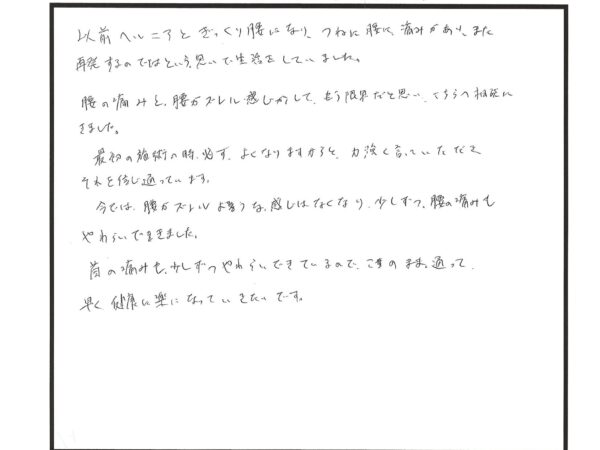 以前ヘルニアとぎっくり腰になり、つねに腰に、痛みがあり、また
再発するのではという思いで生活をしていました。
腰の痛みと、腰がズレル感じがして、もう限界だと思い、こちらへ相談に
きました。
最初の施術の時、必ず、よくなりますからと、力強く言っていただき
それを信じ通っています。
今では、腰がズレルような感じはなくなり、少しずつ、腰の痛みも
やわらいできました。
首の痛みも、少しずつやわらいできているので、このまま通って、
早く健康に楽になっていきたいです。